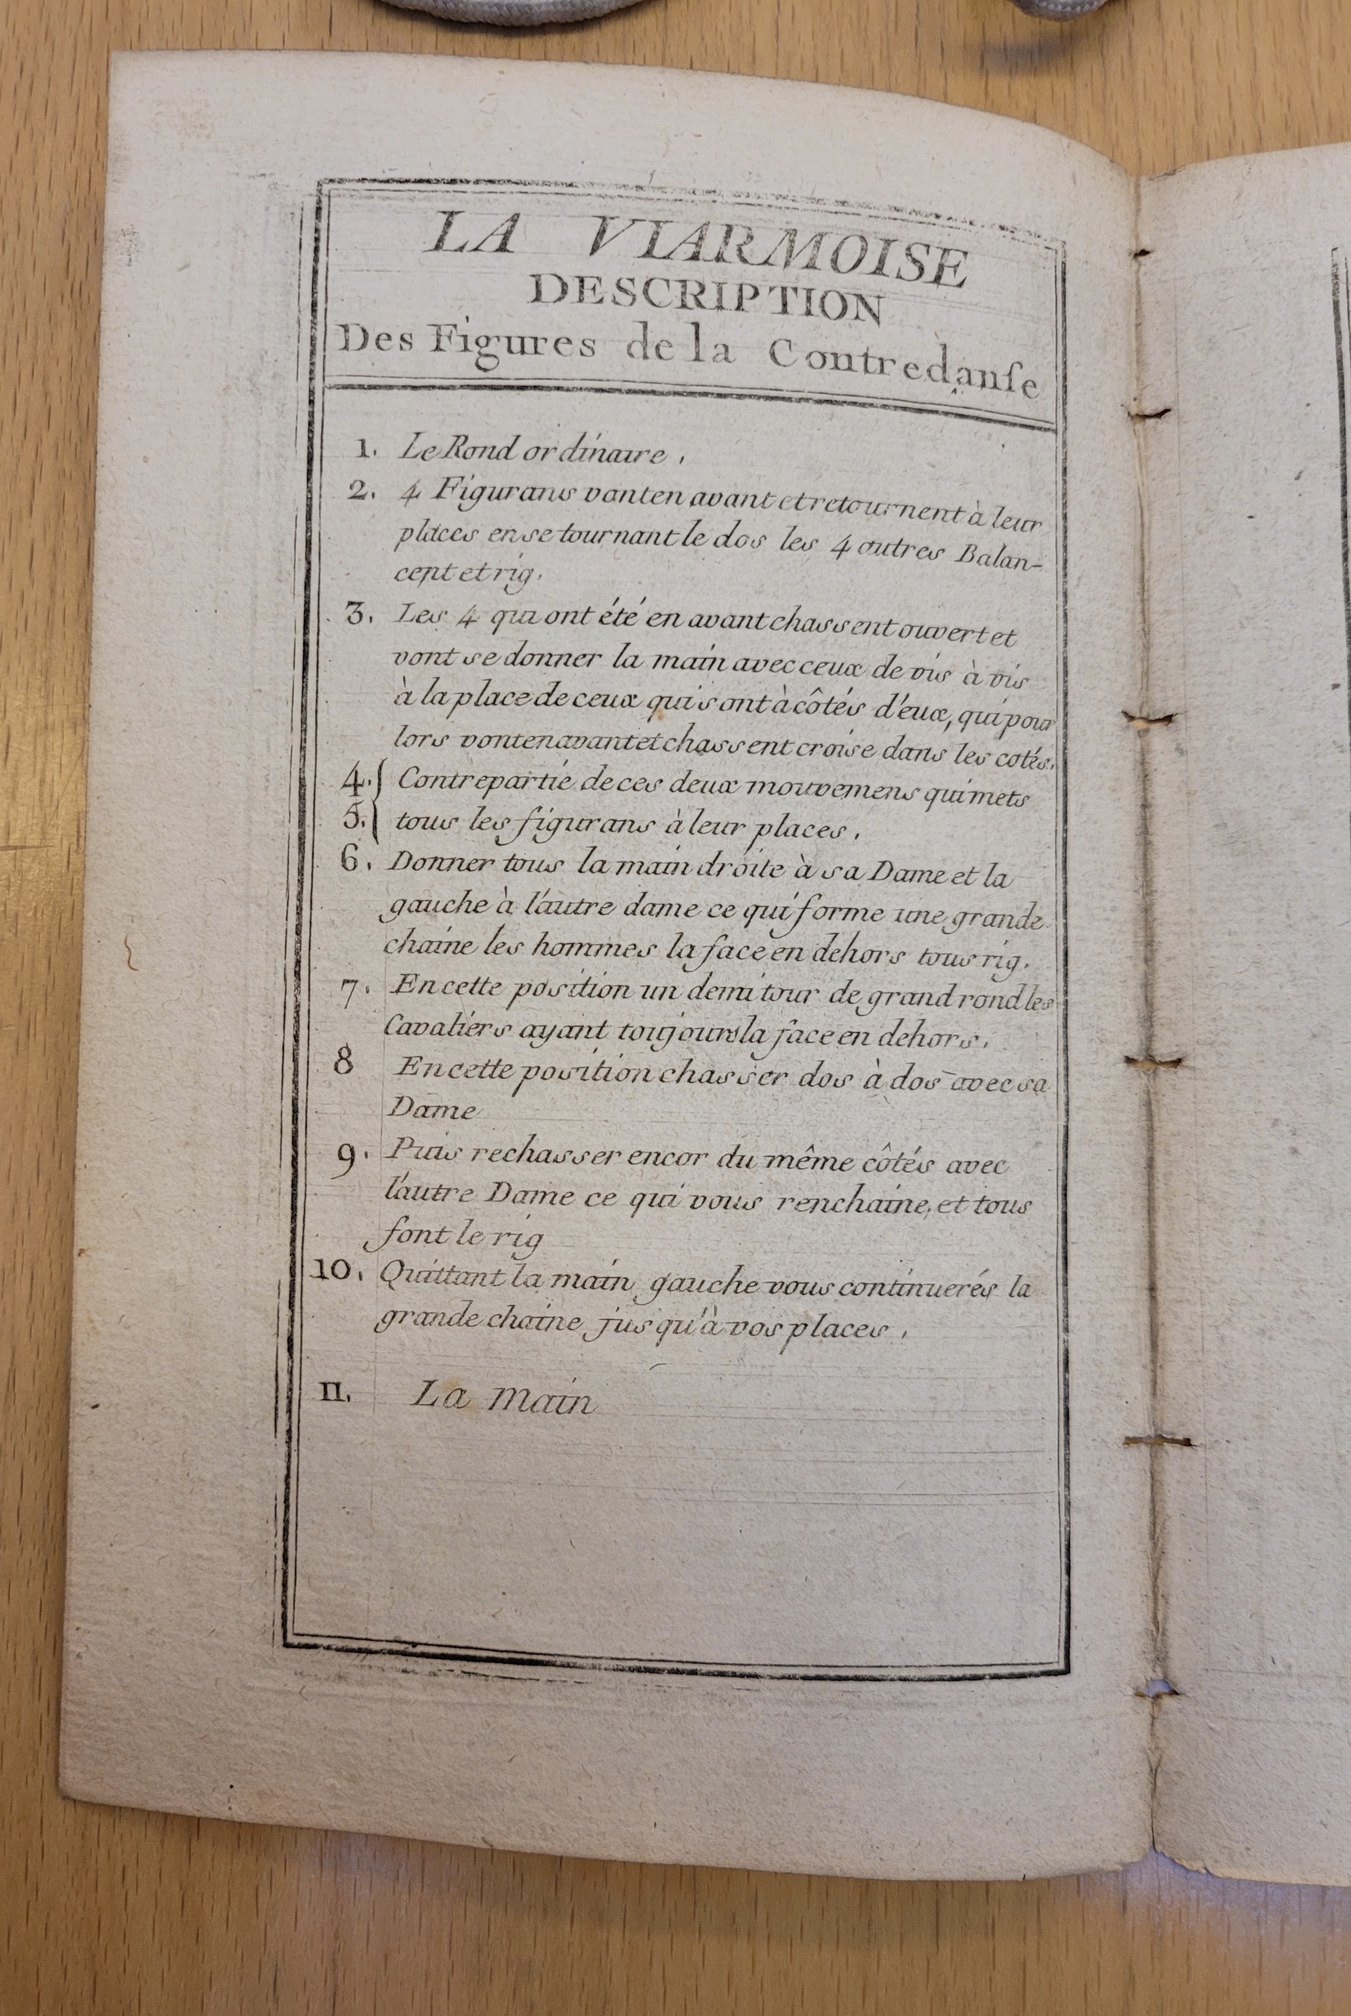 LA VIARMOISE
DESCRIPTION
Des Figures de la Contredanſe
1. Le Rond ordinaire,
2. 4 Figurans vont en avant et retournent à leur
places en se tournant le dos les 4 autres Balan-
cent et rig.
3. Les 4 qui ont été en avant chassent ouvert et
vont se donner la main avec ceux de vis à vis
à la place de ceux qui sont à côtés d'eux, qui pour
lors vont en avant et chassent croisé dans les cotés.
4. Contrepartie de ces deux mouvemens qui mets
5. tous les figurans à leur places,
6. Donner tous la main droite à sa Dame et la
gauche à l'autre dame ce qui forme une grande
chaine les hommes la face en dehors tous rig.
7. En cette position un demi tour de grand rond les
Cavaliers ayant toujours la face en dehors.
8 En cette position chasser dos à dos avec sa
Dame
9. Puis rechasser encor du même côtés avec
l'autre Dame ce qui vous renchaine, et tous
font le rig
10. Quittant la main gauche vous continuerés la
grande chaine jusqu'à vos places,
11. La main